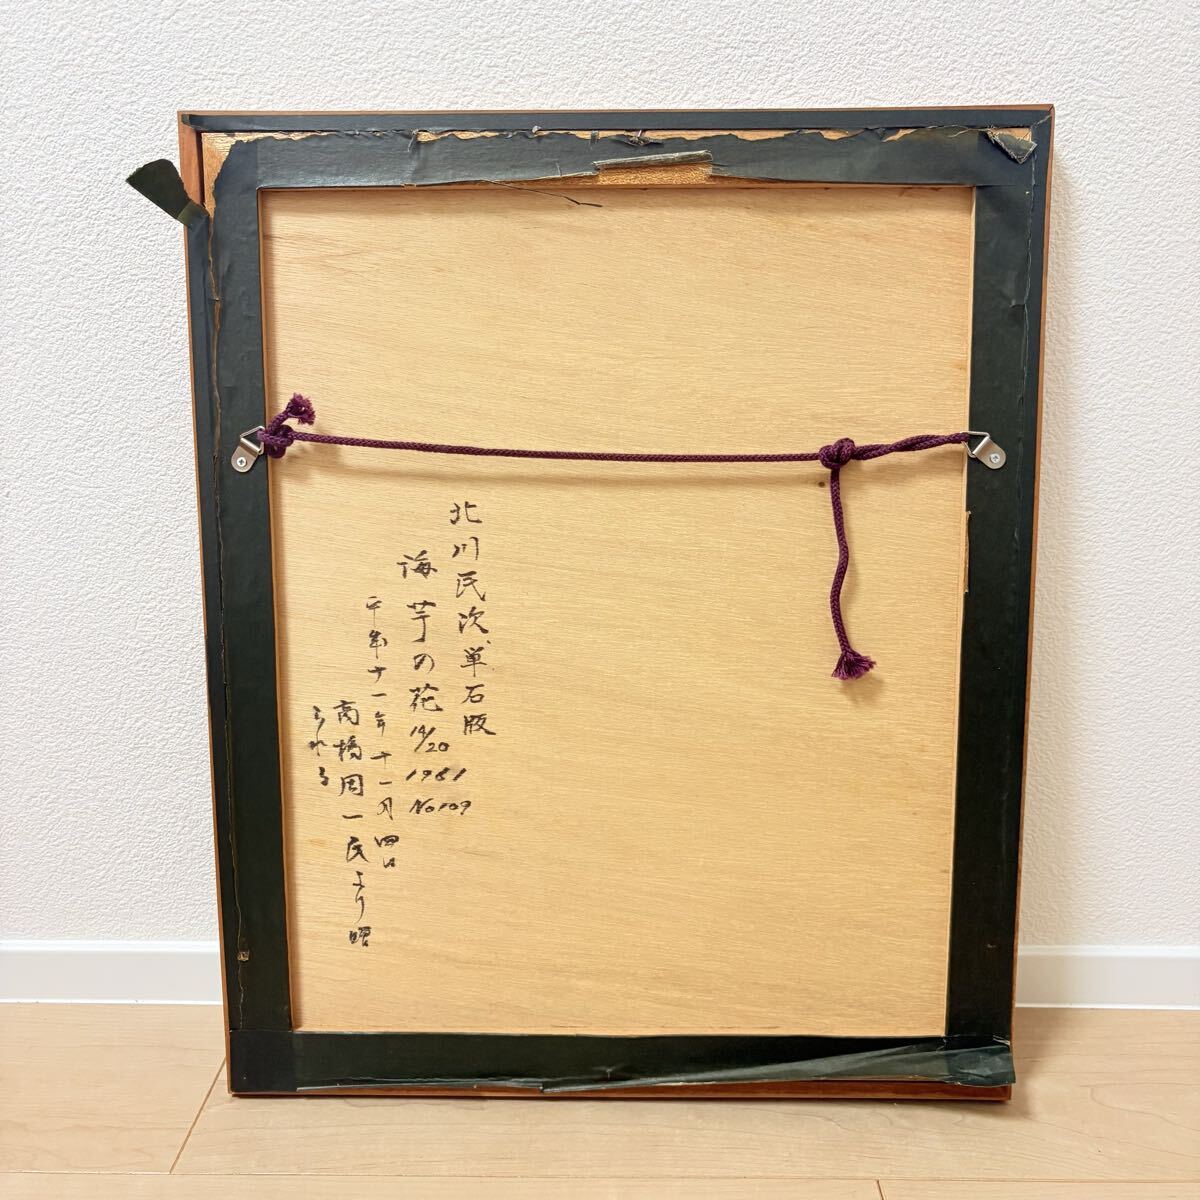 北川民次、単石版
海芋の花 14/20 1981 No109
平成十一年十一月四日
高橋周一氏より贈
られる